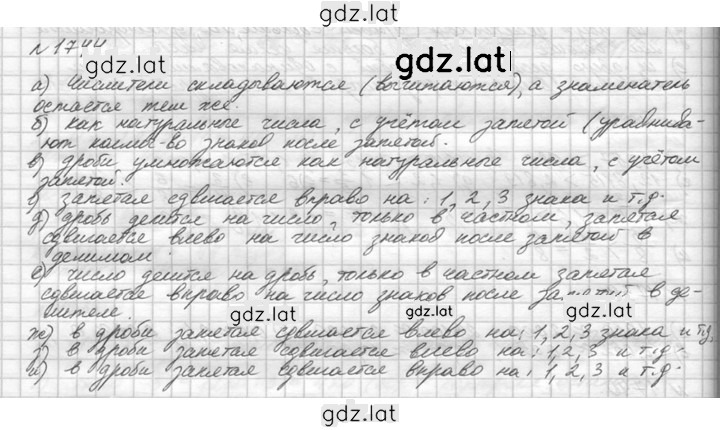 gdz.lat
№1744
gdz.lat
а) Числители складываются (вычитаются), а знаменатель
остается тем же
б) как натуральные числа, с учётом запятой (уравнива-
ют колич-во знаков после запятой.
в) дроби умножаются как натуральные числа, с учётом
запятой.
г) запятая сдвигается вправо на: 1, 2, 3 знака и т.д.
д) дробь делится на число, только в частном, запятая
сдвигается влево на число знаков после запятой в
делимом
е) число делится на дробь, только в частном запятая
сдвигается вправо на число знаков после запятой в де-
лителе.
gdz.lat
gdz.lat
gdz.lat
ж) в дроби запятая сдвигается влево на: 1, 2, 3 знака и т.д.
з) в дроби запятая сдвигается влево на: 1, 2, 3 и т.д.
и) в дроби запятая сдвигается вправо на: 1, 2, 3 и т.д.
gdz.lat